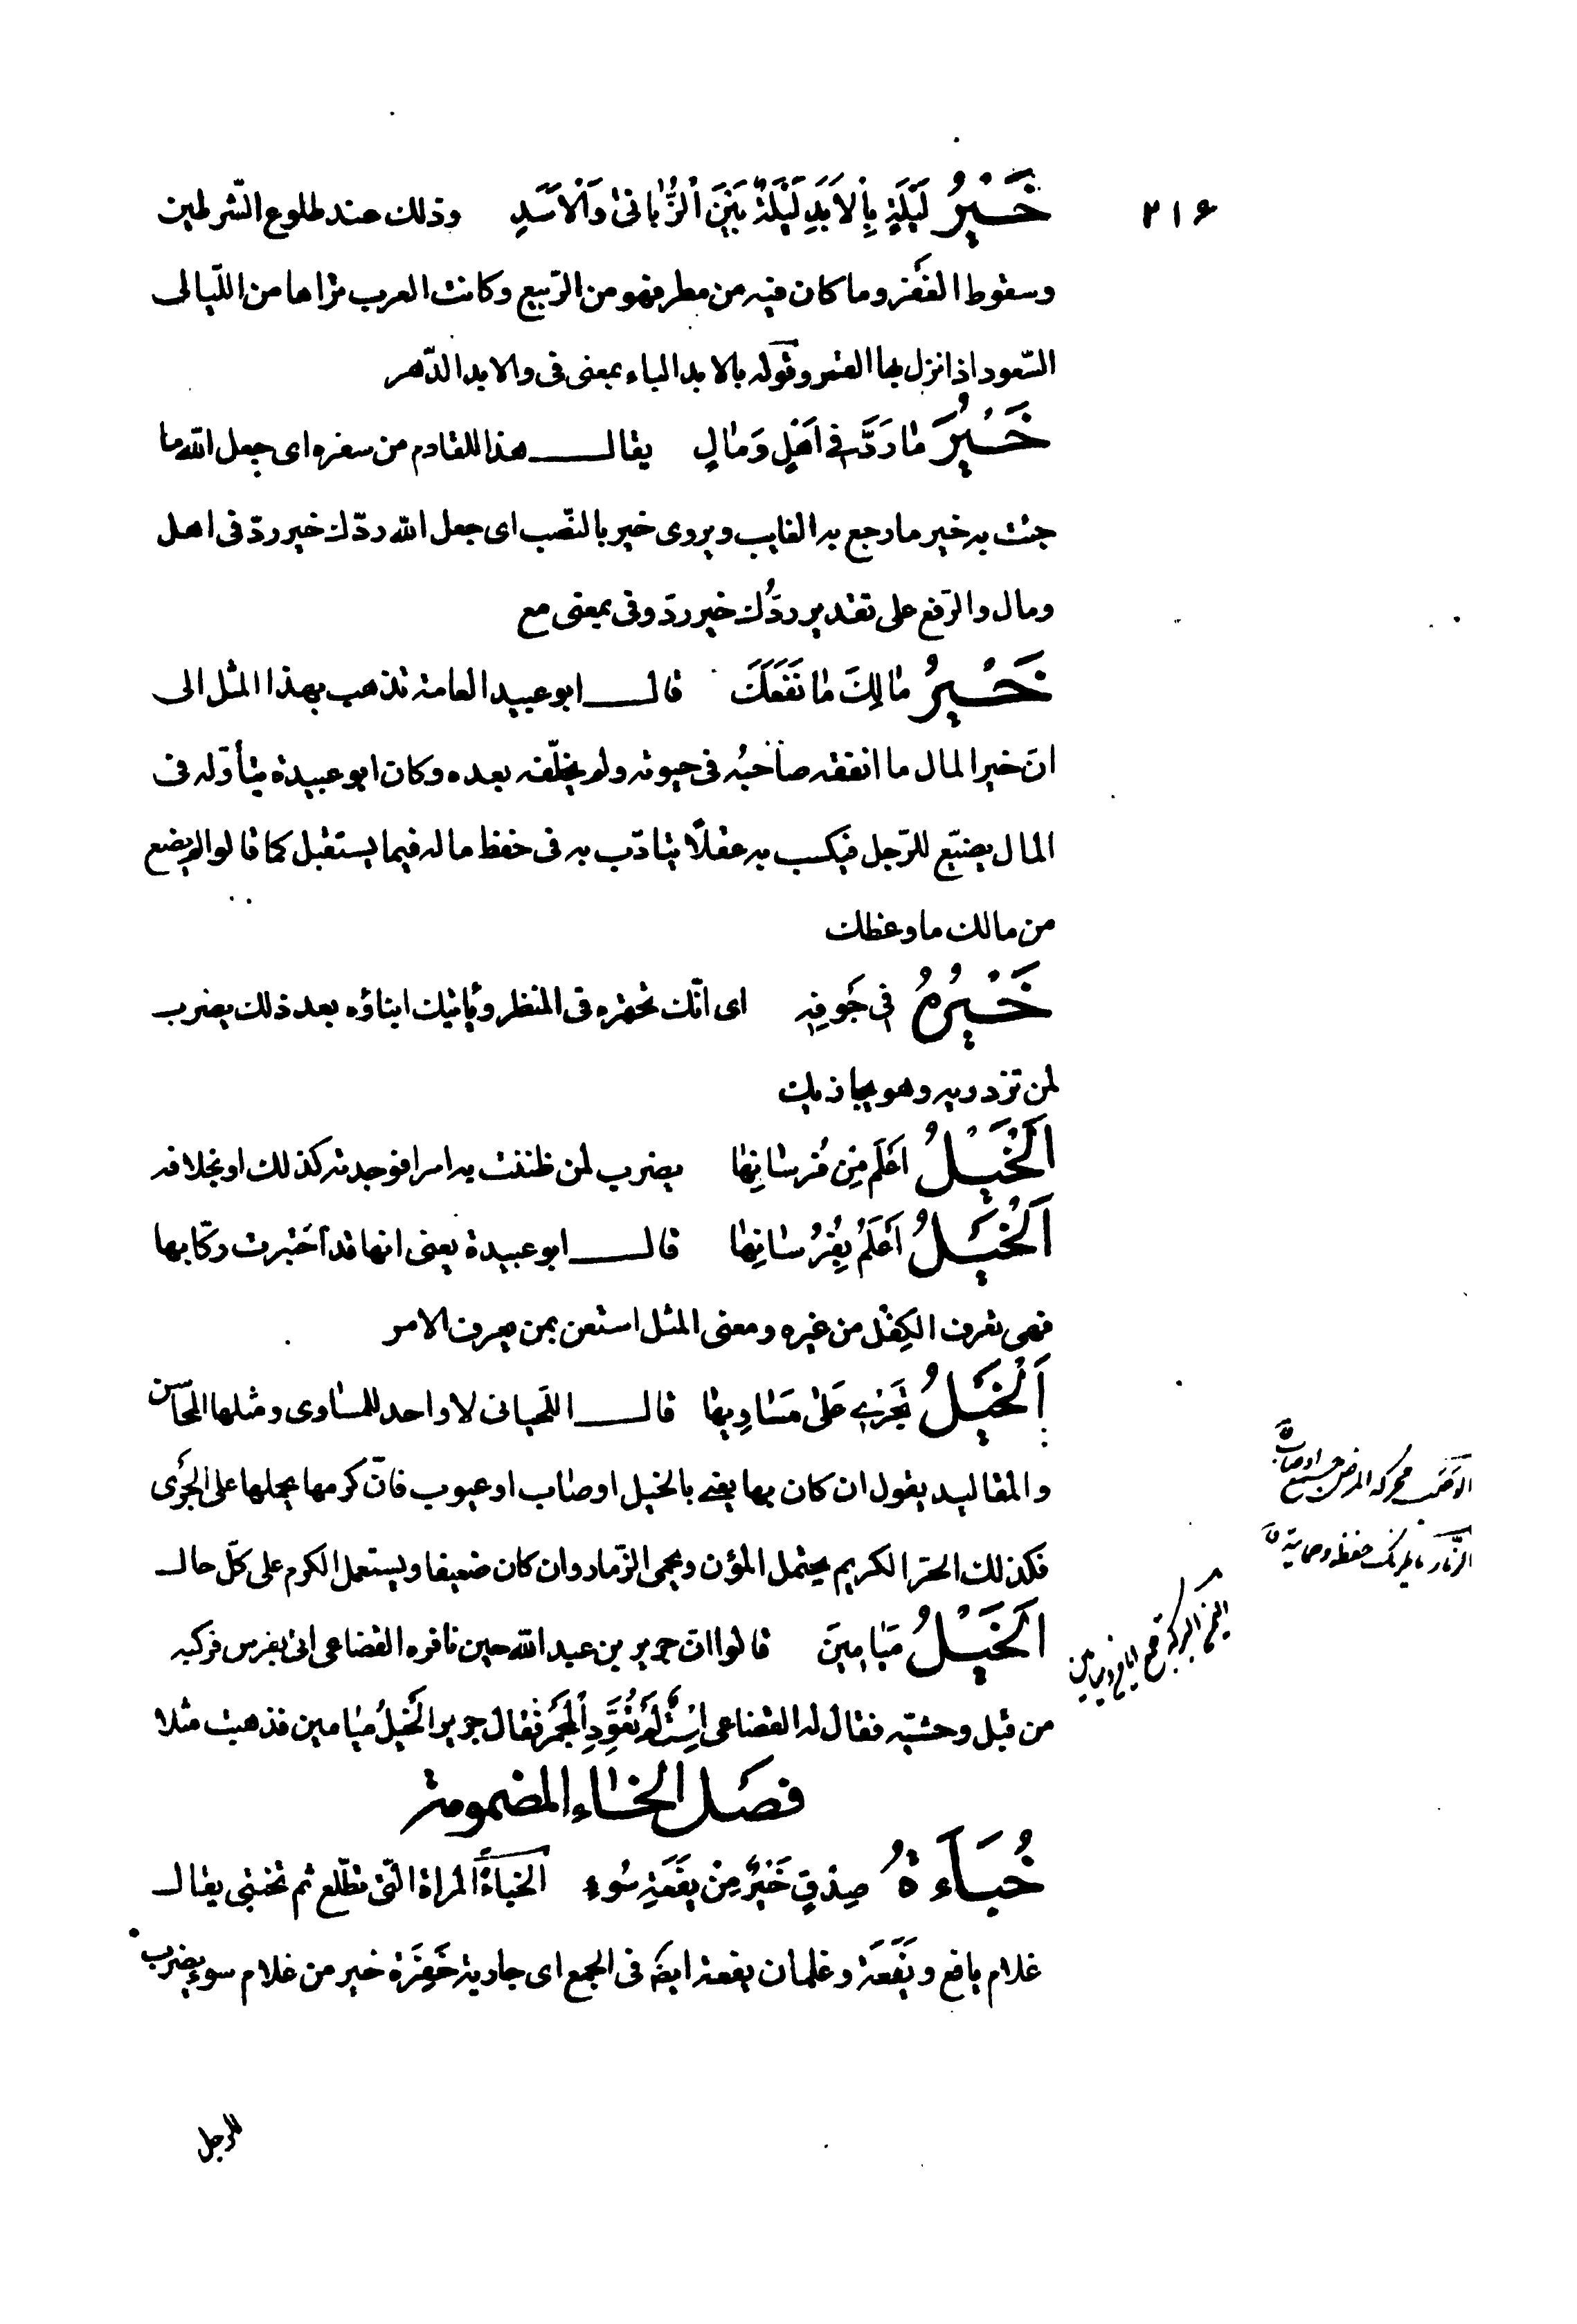 ٢١۶
خَيْرُ لَيْلَةٍ بِالْاَبَدِ لَيْلَةٌ بَيْنَ الزُّبَانىٰ وَالْاَسَدِ وذلك عند طلوع الشّرطين
وسقوط الغفْر وما كان فيه من مطر فهو من الرّبيع وكانت العرب تراها من اللّيالى
السّعود اذا نزل بها القمر وقوله بالابد الباء بمعنى فى والابد الدّهر
خَيْرُ مٰا رَدَّ فِى اَهْلٍ وَمٰالٍ يقال هذا للقادم من سفره اى جعل الله ما
جئت به خير ما رجع به الغايب ويروى خير بالنّصب اى جعل الله ردّك خير ردّ فى اهل
ومال والرّفع على تقدير ردُّك خير ردّ وفى بمعنى مع
خَيْرُ مٰالِكَ مٰا نَفَعَكَ قال ابو عبيد العامة تذهب بهذا المثل الى
انّ خير المال ما انفقه صاحبُه فى حيوته ولم يخلّفه بعده وكان ابو عبيدة يتأوّله فى
المال يضيّع للرّجل فيكسب به عقلًا يتادّب به فى حفظ ماله فيما يستقبل كما قالوا لم يضع
من مالك ما وعظك
خَيْرُهُ فِى جَوفِهِ اى انّك تحقره فى المنظر ويأتيك انباؤه بعد ذلك يضرب
لمن تزدريه وهو يجاذبك
اَلْخَيْلُ اَعْلَم مِن فُرسٰانِهٰا يضرب لمن ظننت به امرا فوجدته كذلك او بخلافه
اَلْخَيْلُ اَعْلَمُ بِفُرْسٰانِهٰا قال ابو عبيدة يعنى انها قد اختبرت ركّابها
فهى تعرف الكِفْل من غيره ومعنى المثل استعن بمن يعرف الامر
اَلْخَيْلُ تَجْرِى عَلىٰ مَسٰاوِيهٰا قال اللّحيانى لا واحد للمساوى ومثلها المحاسن
والمقاليد يقول ان كان بها يعنى بالخيل اوصاب او عيوب فانّ كرمها يحملها على الجَرْى
فكذلك الحرّ الكريم يحتمل المؤن ويحمى الذّمار وان كان ضعيفا ويستعمل الكرم على كلّ حال
اَلْخَيْلُ مَيٰامِينَ قالوا انّ جرير بن عبد الله حين نافره القضاعى اتى بفرس فركبه
من قبل وحشيّه فقال له القضاعى اِسْتٌ لَمْ تُعَوَّدِ الْمِجْمَرَ فقال جرير الْخَيْلُ مَيٰامين فذهبت مثلا
فصل الخاء المضمومة
خُبَاَءةُ صِدْقٍ خَيْرٌ مِنْ يَفَعَةِ سُوءٍ الخباَةُ المراة الّتى تطّلع ثم تختبى يقال
غلام يافع ويَفَعَة وغلمان يفعة ايضا فى الجمع اى جارية خَفِرَة خير من غلام سوء يضرب
للرّجل
الوَصَب محركه المرض جمع اوصاب
الذّمار ما يلزمك حفظه وحمايته
اليُمْن البركة ج ايامن وميامين